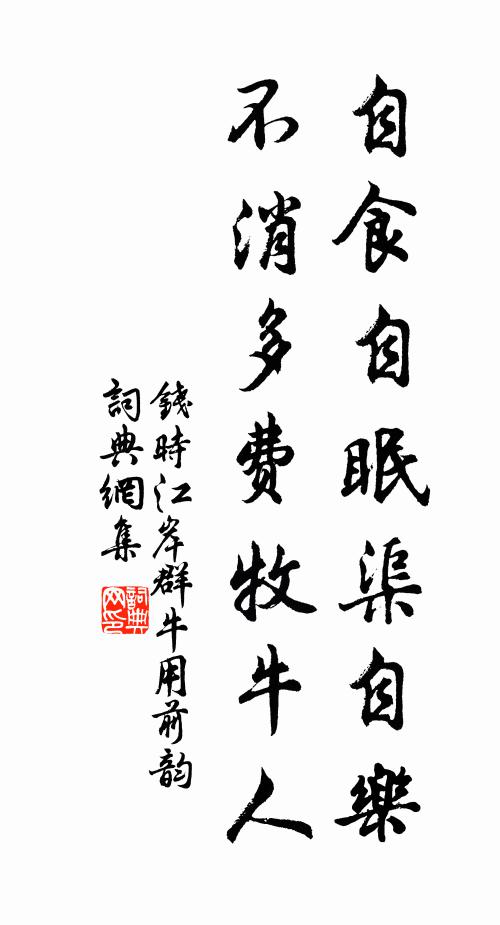 自食自眠渠自樂
不消多費牧牛人
錢時江岸群牛用前韵
詞典網集
詞典
网印